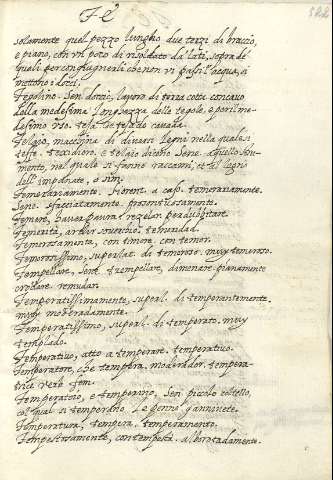 Te
solamente quel pezzo lungho due terzi di braccio,
e piano, con un poco di risoldato da lati, sopra de
quali per congiugnerli che non vi passi l'acqua, si
mettono i docci.
Tegolino. Sen. doccio, lavoro di terra cotta concavo
della medesima lunghezza delle tegole, e per il me-
desimo uso. teja. teja de canal.
Telajo, macchina di diversi legni nella quale si
tesse. texedero. e telajo diceno Sene. aquello stru-
mento, nel quale si fanno raccami, et al legno
dell'impannate, o sim.
Temerariamente. Fiorent. a caso. temerariamente.
Sene. sfacciatamente. prosontuosamente.
Temere, haver paura. rezelar. per dubbitare.
Temerità, ardir soverchio. temeridad.
Temerosamente, con timore. con temor.
Temerosissimo, superlat. di temeroso. muy temeroso.
Tempellare, Sene. trempellare, dimenare pianamente
crollare. remudar.
Temperatissimamente, superl. di temperantemente.
muy moderadamente.
Temperatissimo, superl. di temperato. muy
templado.
Temperativo, atto a temperare. temperativo.
Temperatore, che tempera. moderador. tempera-
trice verb. fem.
Temperatoio, e temperino, Sen. piccolo coltello,
col qual si temperano le penne. gannivete.
Temperatura, tempera. temperamento.
Tempestosamente, con tempesta. alborotadamente.